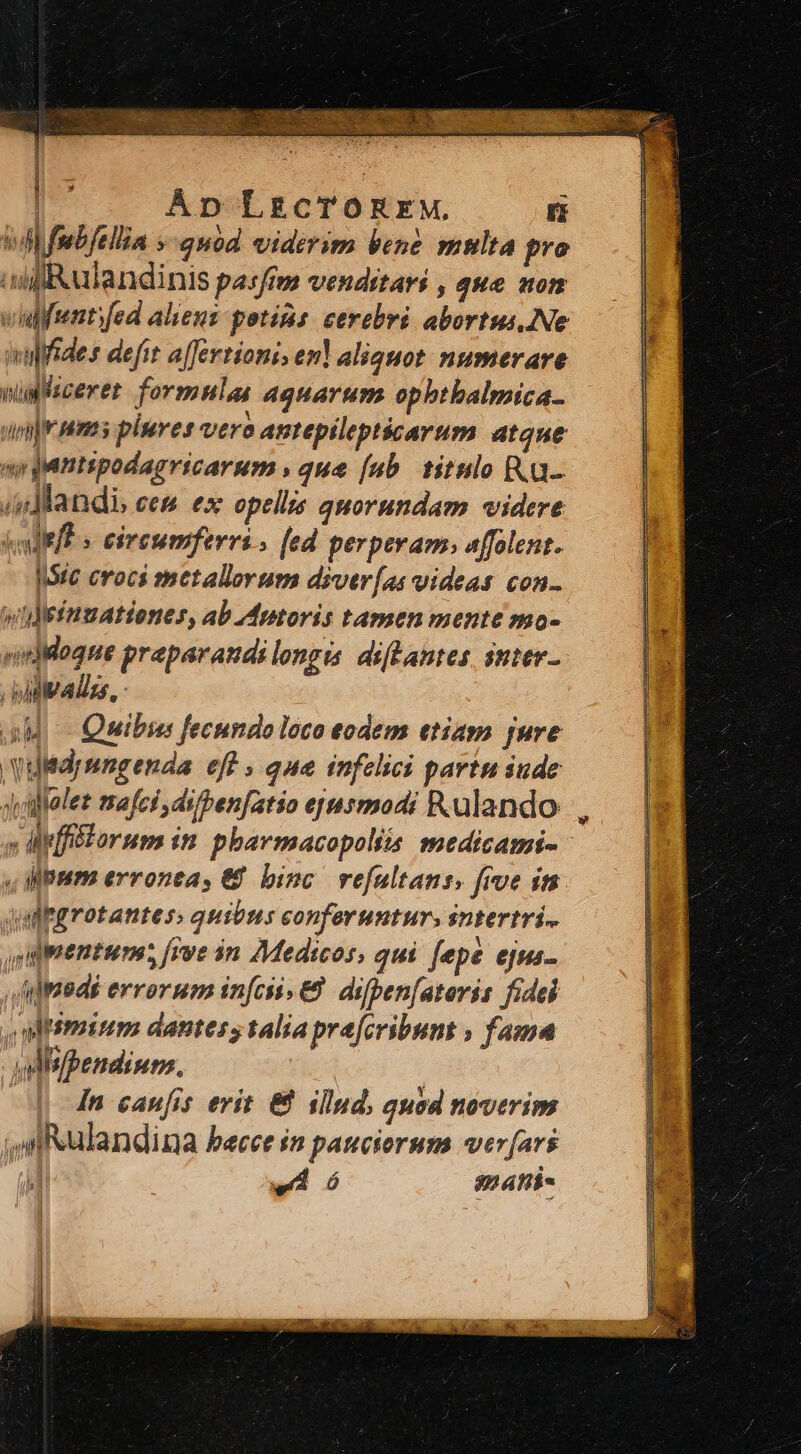 AD LECTOREM.
subsellia, quòd viderim bene multa pro
Rulandinis passim venditari, quæ non
sunt, sed alieni potiùs cerebri abortus. Ne
fides desit assertioni, en! aliquot numerare
liceret formulas aquarum ophthalmica-
rum; plures vero antepilepticarum atque
antipodagricarum, quæ sub titulo Ru-
landi, ceu ex opellis quorundam videre
est, circumferri, sed perperam, assolent.
Sic croci metallorum diversas videas con-
cinnationes, ab Autoris tamen mente mo-
doque præparandi longis distantes inter-
vallis.
Quibus secundo loco eodem etiam jure
adjungenda est, quæ infelici partu inde
solet nasci, dispensatio ejusmodi Rulando
in pharmacopoliis medicami-
num erronea, & hinc resultans, sive in
ægrotantes, quibus conferuntur, intertri-
mentum; sive in Medicos, qui sæpè ejus-
modi errorum inscii, & dispensatoris fidei
nimium dantes, talia præscribunt, famæ
dispendium.
In causis erit & illud, quòd noverim
Rulandina hæcce in pauciorum versari
ó mani-